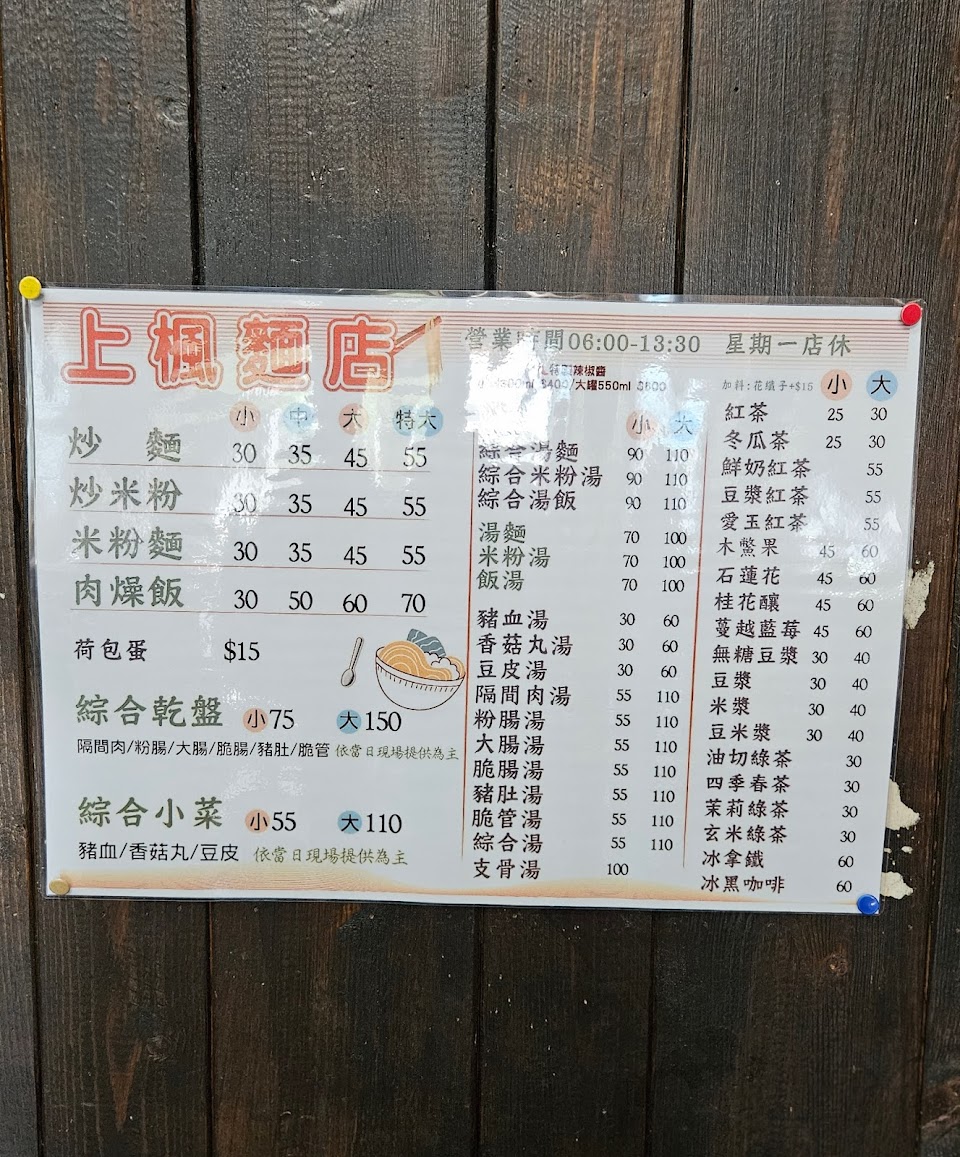 上楓麵店
營業時間06:00-13:30 星期一店休
小 中 大 特大
炒 麵 30 35 45 55
炒米粉 30 35 45 55
米粉麵 30 35 45 55
肉燥飯 30 50 60 70
荷包蛋 $15
綜合乾盤 小75 大150
隔間肉/粉腸/大腸/脆腸/豬肚/脆管 依當日現場提供為主
綜合小菜 小55 大110
豬血/香菇丸/豆皮 依當日現場提供為主
辣椒醬
/大罐550ml $800
小 大
綜合湯麵 90 110
綜合米粉湯 90 110
綜合湯飯 90 110
湯麵 70 100
米粉湯 70 100
飯湯 70 100
豬血湯 30 60
香菇丸湯 30 60
豆皮湯 30 60
隔間肉湯 55 110
粉腸湯 55 110
大腸湯 55 110
脆腸湯 55 110
豬肚湯 55 110
脆管湯 55 110
綜合湯 55 110
支骨湯 100
加料:花繽子+$15 小 大
紅茶 25 30
冬瓜茶 25 30
鮮奶紅茶 55
豆漿紅茶 55
愛玉紅茶 55
木虌果 45 60
石蓮花 45 60
桂花釀 45 60
蔓越藍莓 45 60
無糖豆漿 30 40
豆漿 30 40
米漿 30 40
豆米漿 30 40
油切綠茶 30
四季春茶 30
茉莉綠茶 30
玄米綠茶 30
冰拿鐵 60
冰黑咖啡 60